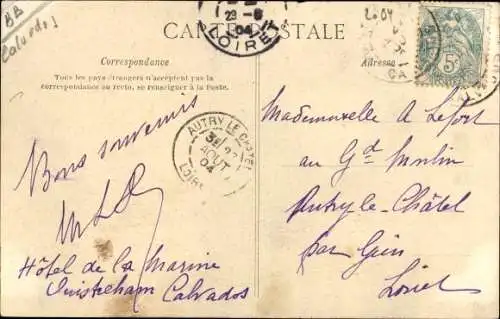 BB
Calvados
CARTE POSTALE
29-8
04
LOIRET
2004
5c
CA
Correspondance
Tous les pays étrangers n'acceptent pas la
correspondance au recto, se renseigner à la Poste.
Adresse
AUTRY LE CHATEL
AOUT
04
LOIRET
Bons souvenirs
Hôtel de la Marine
Ouistreham Calvados
Mademoiselle A Lefort
au Gd Moulin
Autry-le-Châtel
par Gien
Loiret